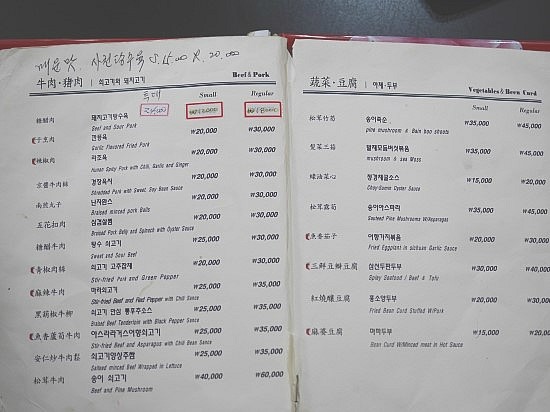 매운맛. 사천탕수육 S.15.00 R.20.000
牛肉·猪肉 | 쇠고기와 돼지고기 Beef & Pork
특대 Small Regular
糖醋肉 돼지고기탕수육
Beef and Sour Pork
干烹肉 깐풍육 ₩20,000 ₩30,000
Garlic Flavored Fried Pork
辣椒肉 라조육 ₩20,000 ₩30,000
Hunan Spicy Pork with Chili, Garlic and Ginger
京醬牛肉絲 경장육사 ₩20,000 ₩30,000
Shredded Pork with Sweet, Soy Bean Sauce
南煎丸子 난자완스 ₩20,000 ₩30,000
Braised minced pork Balls
五花扣肉 삼겹살찜 ₩20,000 ₩30,000
Braised Pork Belly and Spinach with Oyster Sauce
糖醋牛肉 탕수 쇠고기 ₩25,000 ₩30,000
Sweet and Sour Beef
青椒肉絲 쇠고기 고추잡채 ₩20,000 ₩30,000
Stir-fried Pork and Green Pepper
麻辣牛肉 마라쇠고기 ₩25,000 ₩35,000
Stir-fried Beef and Red Pepper with Chili Sauce
黑胡椒牛柳 쇠고기 안심 통후추소스 ₩25,000 ₩35,000
Braised Beef Tenderloin with Black Pepper Sauce
魚香蘆筍牛肉 아스파라거스어향쇠고기 ₩25,000 ₩35,000
Stir-fried Beef and Asparagus with Chili Bean Sauce
安仁炒牛肉鬆 쇠고기양상추쌈 ₩25,000 ₩35,000
Salteed minced Beef Wrapped in Lettuce
松茸牛肉 송이 쇠고기 ₩40,000 ₩60,000
Beef and Pine Mushroom
蔬菜·豆腐 | 야채·두부 Vegetables & Bean Curd
Small Regular
松茸竹筍 송이죽순 ₩35,000 ₩45,000
pine mushroom & Bam boo shoots
髮菜三菇 발채모듬버섯볶음 ₩35,000 ₩45,000
mushroom & sea Moss
蠔油菜心 청경채굴소스 ₩15,000 ₩20,000
Choy-Summ Oyster Sauce
松茸露筍 송이아스파라 ₩35,000 ₩45,000
Sauteed Pine Mushrooms W/Asparagus
魚香茄子 어향가지볶음 ₩20,000 ₩30,000
Fried Eggplant in sichuan Garlic Sauce
三鮮豆瓣豆腐 삼선두반두부 ₩30,000 ₩40,000
Spicy Seafood / Beef & Tofu
紅燒釀豆腐 홍소양두부 ₩20,000 ₩40,000
Fried Bean Curd Stuffed W/Pork
麻婆豆腐 마파두부 ₩15,000 ₩20,000
Bean Curd W/Minced meat in Hot Sauce